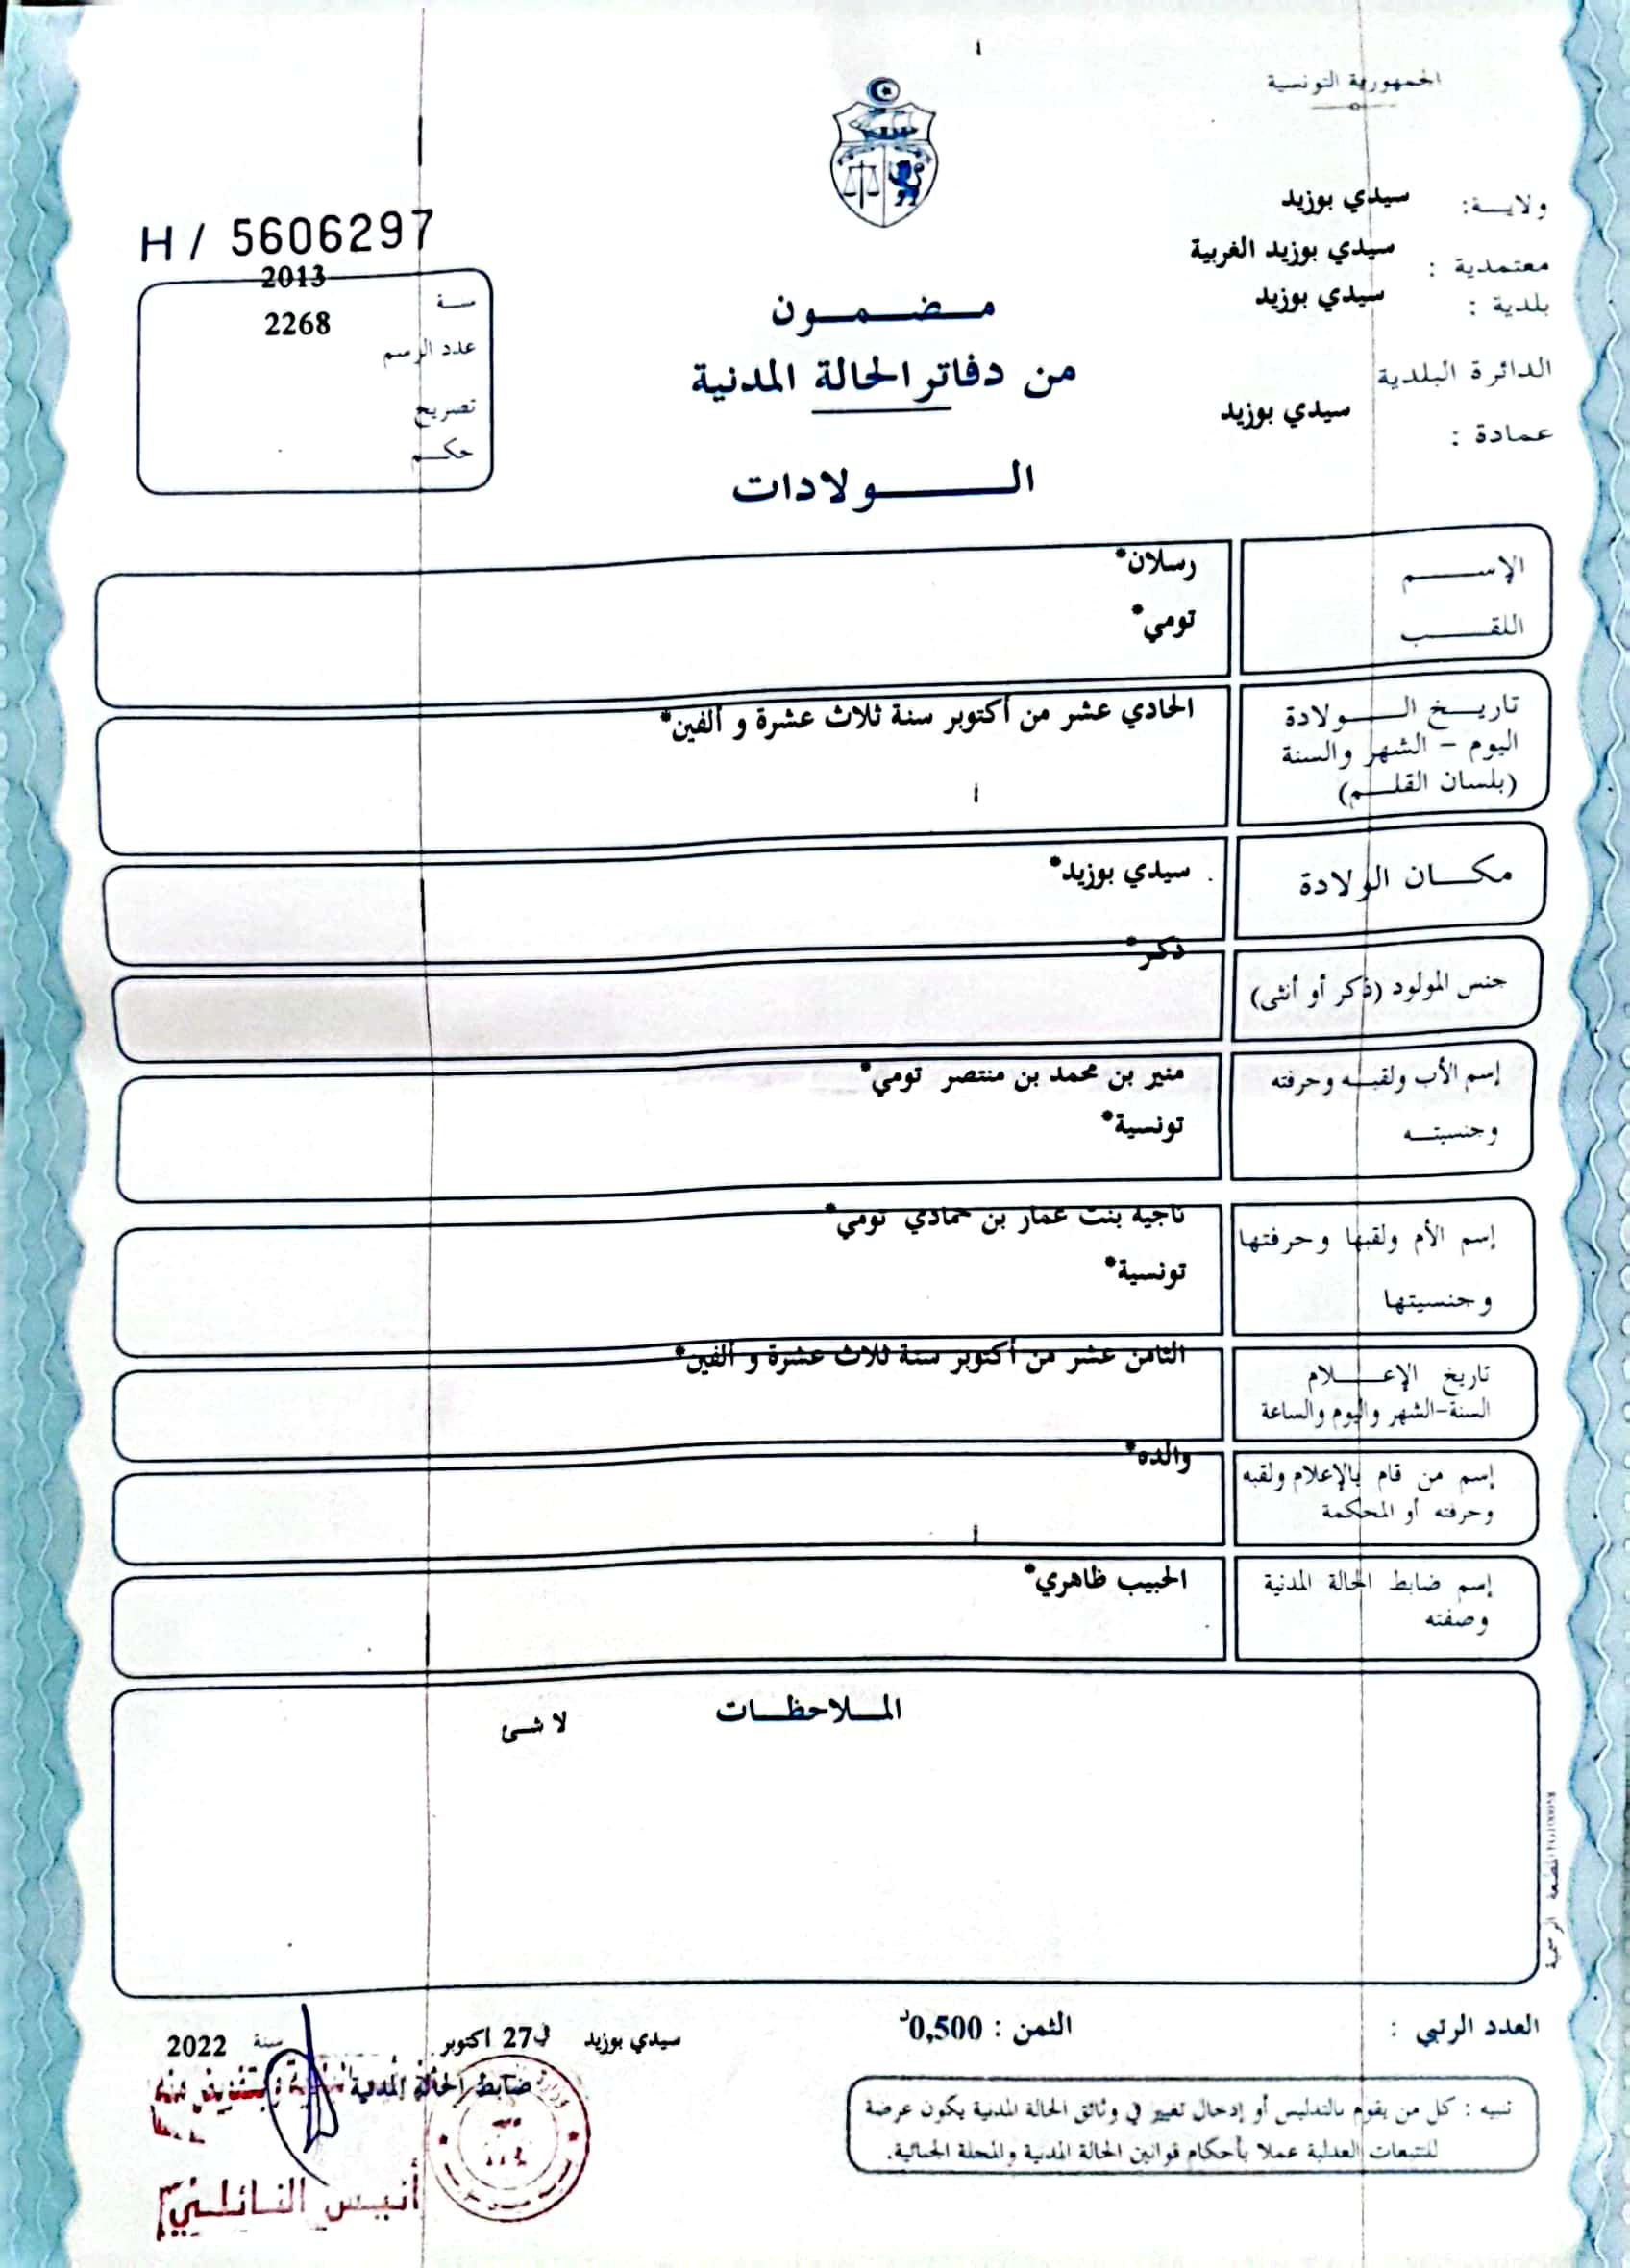 الجمهورية التونسية
ولاية: سيدي بوزيد
معتمدية : سيدي بوزيد الغربية
بلدية : سيدي بوزيد
الدائرة البلدية
عمادة : سيدي بوزيد
H / 5606297
سنة 2013
عدد الرسم 2268
تصريح
حكم
مضمون
من دفاتر الحالة المدنية
الولادات
الإسم رسلان*
اللقب تومي*
تاريخ الولادة الحادي عشر من أكتوبر سنة ثلاث عشرة و ألفين*
اليوم - الشهر والسنة
(بلسان القلم)
مكان الولادة سيدي بوزيد*
جنس المولود (ذكر أو أنثى) ذكر*
إسم الأب ولقبه وحرفته منير بن محمد بن منتصر تومي*
وجنسيته تونسية*
إسم الأم ولقبها وحرفتها ناجية بنت عمار بن حمادي تومي*
وجنسيتها تونسية*
تاريخ الإعلام الثامن عشر من أكتوبر سنة ثلاث عشرة و ألفين*
السنة-الشهر واليوم والساعة
إسم من قام بالإعلام ولقبه والده*
وحرفته أو المحكمة
إسم ضابط الحالة المدنية الحبيب ظاهري*
وصفته
الملاحظات
لا شئ
المطبعة الرسمية
العدد الرتبي :
الثمن : 0,500د
سيدي بوزيد في 27 اكتوبر سنة 2022
ضابط الحالة المدنية
أنيس النائلي
تنبيه : كل من يقوم بالتدليس أو إدخال تغيير في وثائق الحالة المدنية يكون عرضة
للتتبعات العدلية عملا بأحكام قوانين الحالة المدنية والمجلة الجنائية.